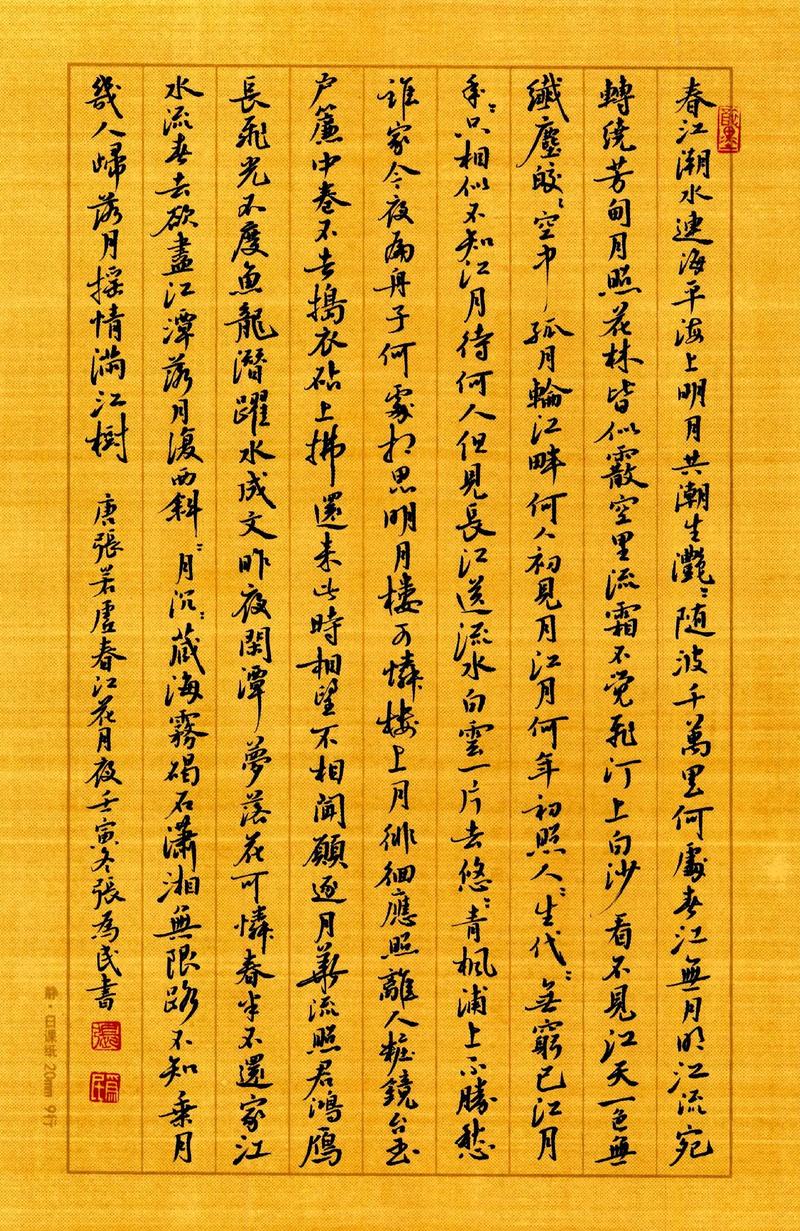 春江潮水連海平海上明月共潮生灧〻随波千萬里何處春江無月明江流宛
轉繞芳甸月照花林皆似霰空里流霜不覺飛汀上白沙看不見江天一色無
纖塵皎〻空中孤月輪江畔何人初見月江月何年初照人〻生代〻無窮已江月
年〻只相似不知江月待何人但見長江送流水白雲一片去悠〻青楓浦上不勝愁
誰家今夜扁舟子何處相思明月樓可憐樓上月徘徊應照離人粧鏡台玉
户簾中卷不去搗衣砧上拂還来此時相望不相聞願逐月華流照君鴻雁
長飛光不度魚龍潜躍水成文昨夜閑潭夢落花可憐春半不還家江
水流春去欲盡江潭落月復西斜〻月沉〻藏海霧碣石瀟湘無限路不知乗月
幾人歸落月摇情满江樹 唐張若虚春江花月夜壬寅冬張為民書
張
為民
静·日课纸 20mm 9行